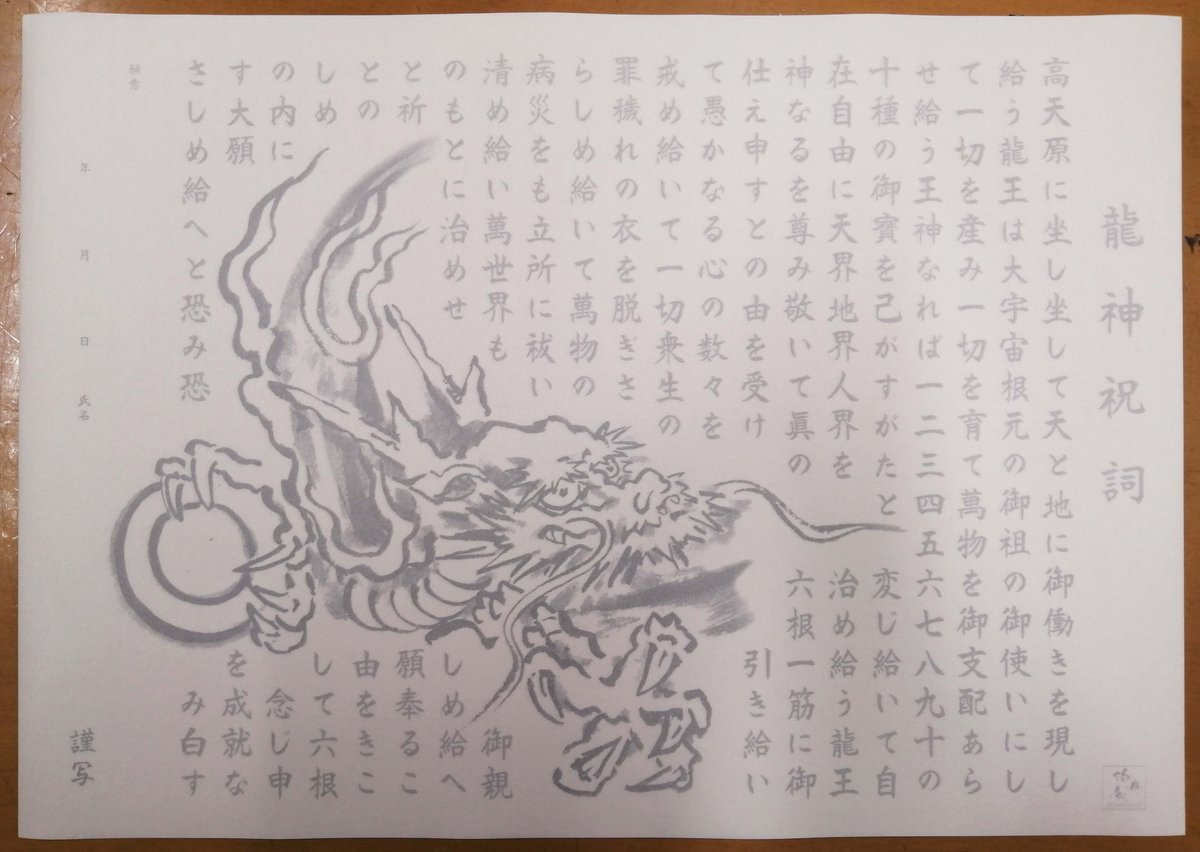 龍神祝詞
高天原に坐し坐して天と地に御働きを現し
給う龍王は大宇宙根元の御祖の御使いにし
て一切を産み一切を育て萬物を御支配あら
せ給う王神なれば一二三四五六七八九十の
十種の御寶を己がすがたと変じ給いて自
在自由に天界地界人界を治め給う龍王
神なるを尊み敬いて眞の六根一筋に御
仕え申すとの由を受け引き給い
て愚かなる心の数々を
戒め給いて一切衆生の
罪穢れの衣を脱ぎさ
らしめ給いて萬物の
病災をも立所に祓い
清め給い萬世界も御親
のもとに治めせしめ給へ
と祈願奉るこ
との由をきこ
しめして六根
の内に念じ申
す大願を成就な
さしめ給へと恐み恐み白す
願意
年 月 日 氏名
謹写